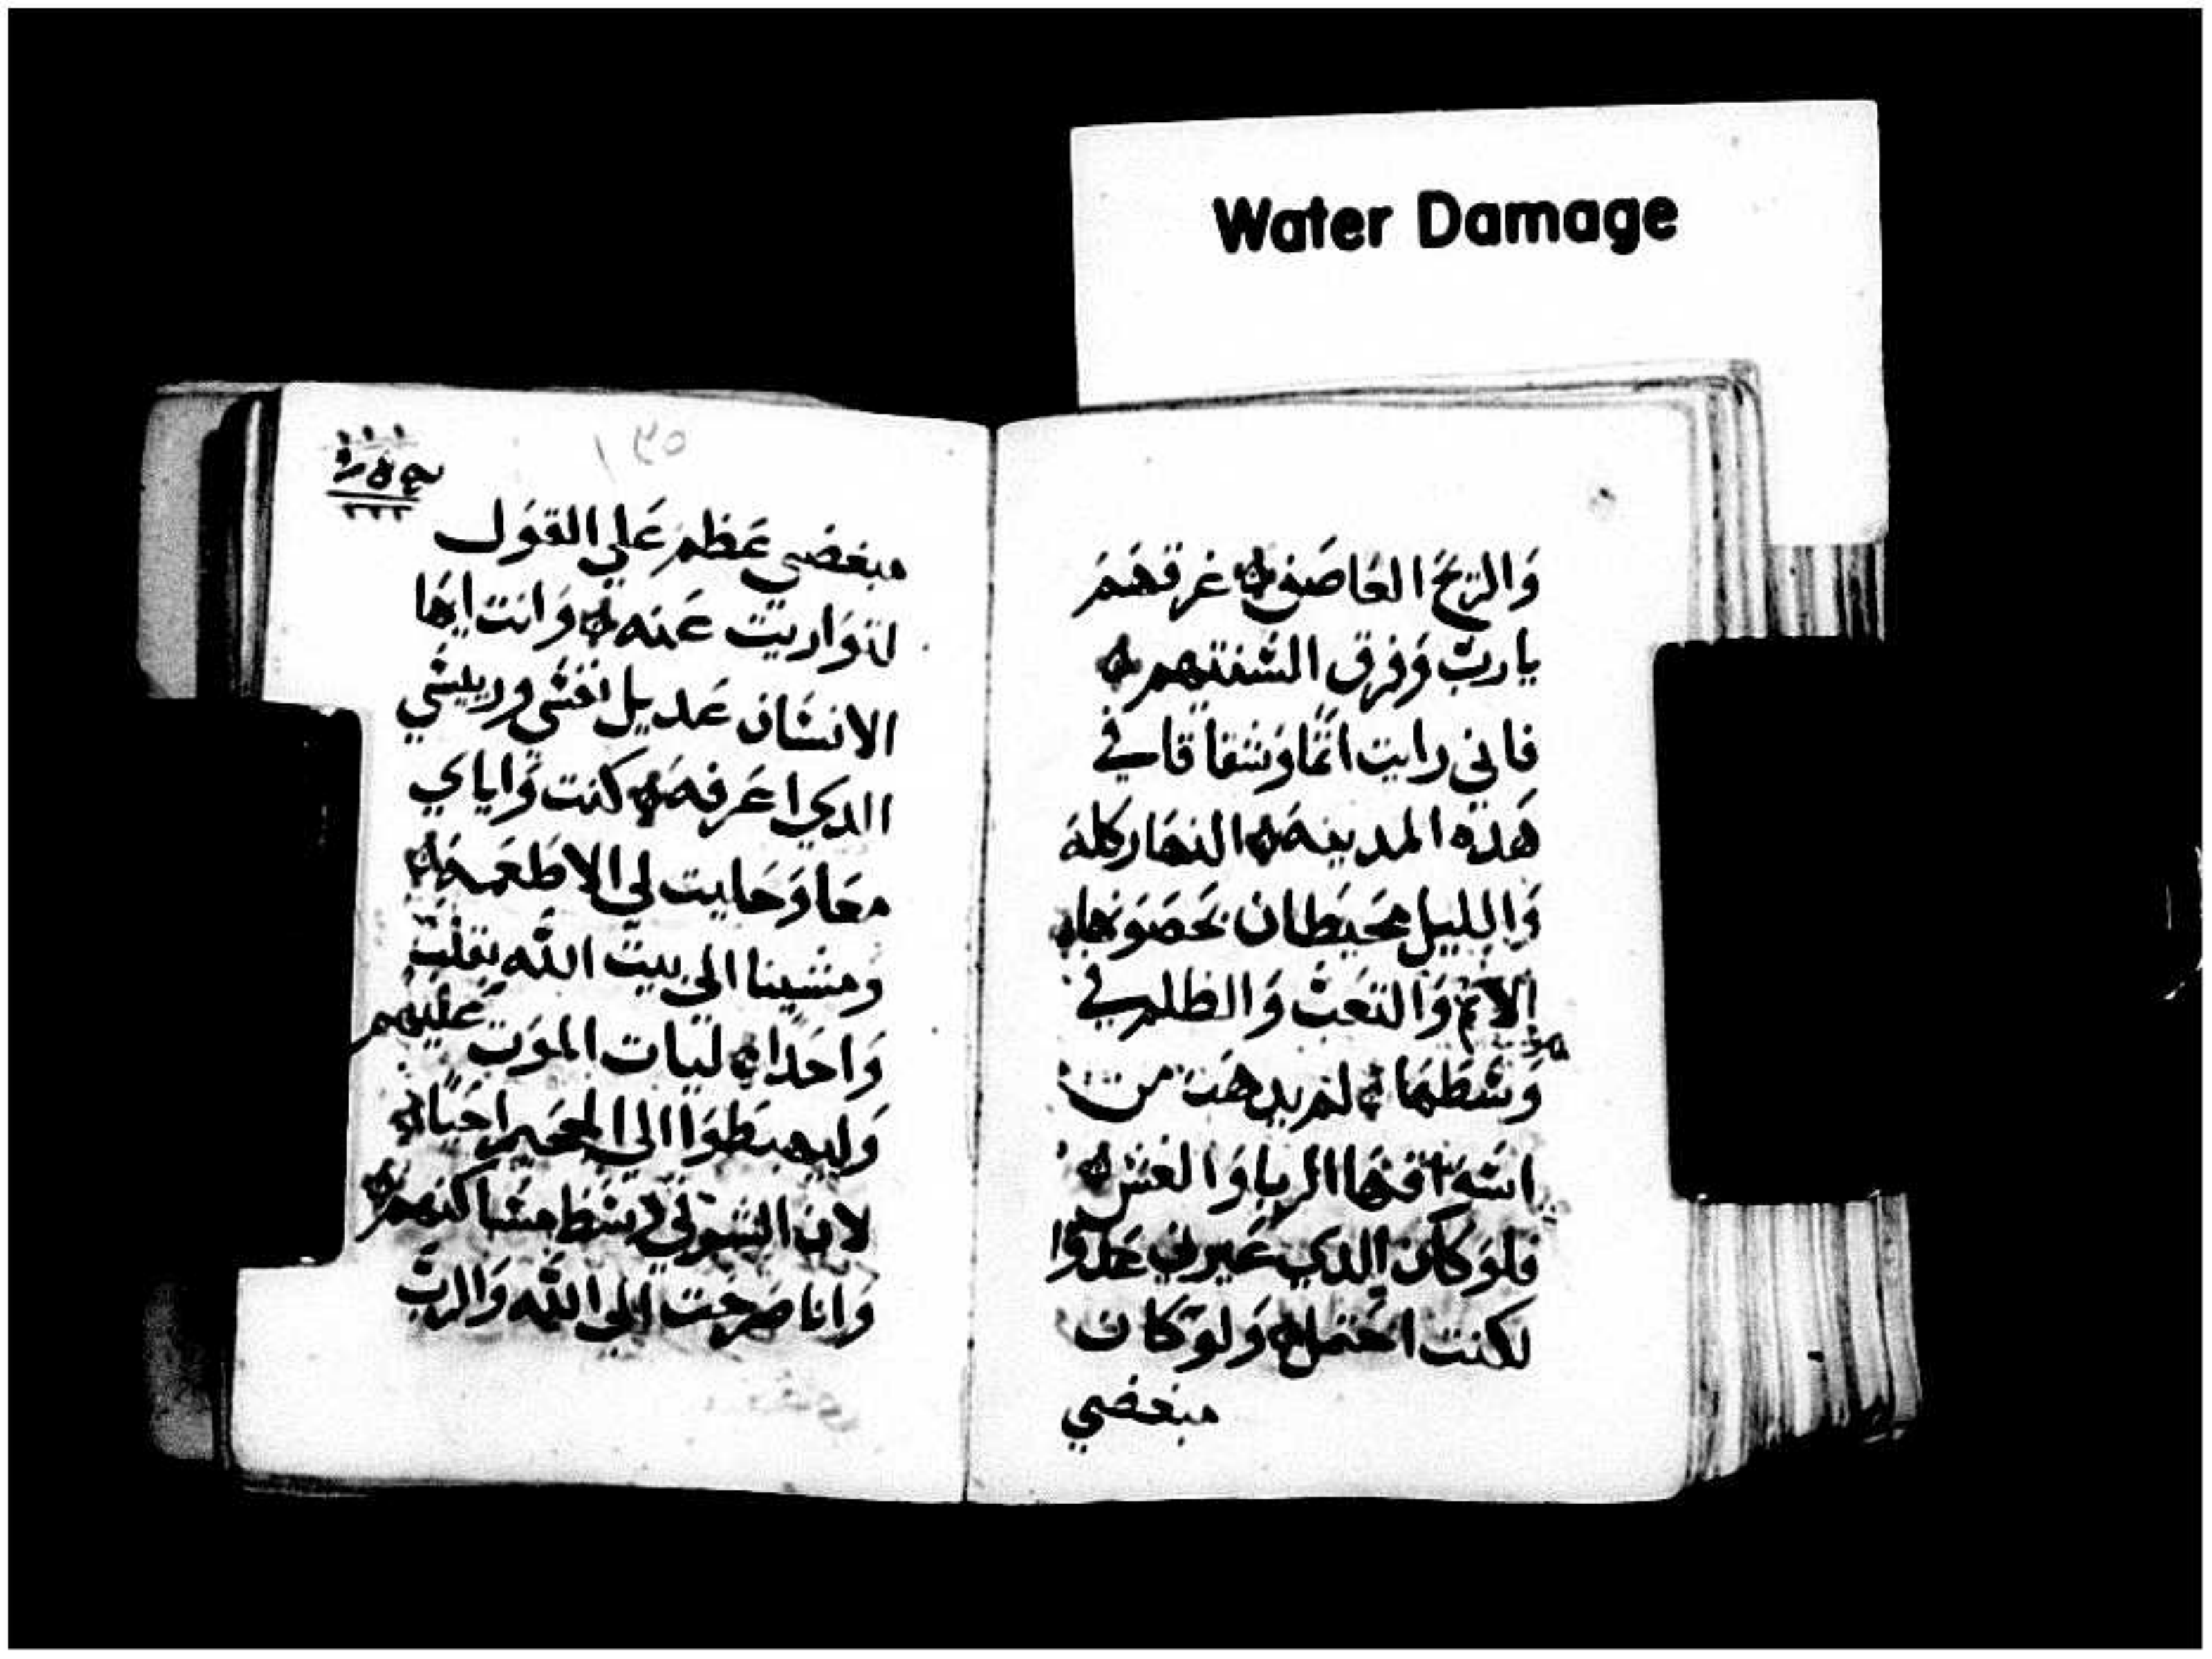 Water Damage
وَالرّيحَ العَاصَف غرقهَمَ
ياربّ وَفرق السّنتهم
فاني رايت اثمًا وَشقاقا في
هَده المدينه النهَار كله
وَالليل محَيَطان بحَصَوَنها
الاثم وَالتعَبَ وَالظلم في
وَسَطهَا لم يدهَب من
اسَوَاقهَا الربا وَالغش
فلوَ كان الدي عَيرني عَدوًا
لكنت احَتمل وَلوَ كان
مبغضي
١٣٥
مبغضي عَظم عَلي القوَل
لتوَاريت عَنه وَانت ايهَا
الانسَان عَديل نفسَي ورييسَي
الدي اعَرفه كنت وَاياي
معَا وَحَليت لي الاطعَمه
وَمشينا الي بيت اللّه بقلبَ
وَاحَدا ليات الموَت عَليهم
وَليهبَطوَا الي الجحَيم احَيَا
لان الشروَر في وسَط مسَاكنهم
وَانا صرخَت الي اللّه وَالربّ